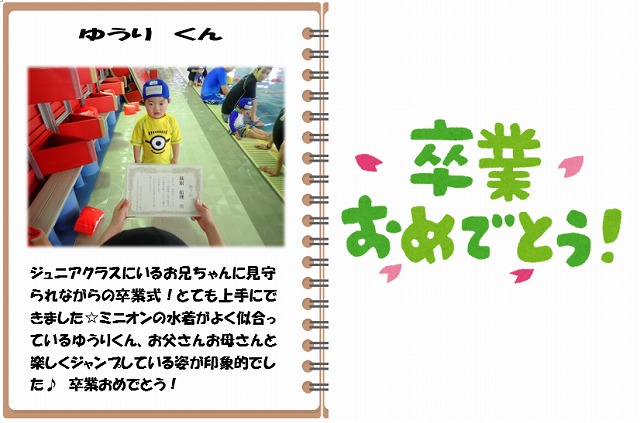 ゆうり くん
ジュニアクラスにいるお兄ちゃんに見守
られながらの卒業式！とても上手にで
きました☆ミニオンの水着がよく似合っ
ているゆうりくん、お父さんお母さんと
楽しくジャンプしている姿が印象的でし
た♪ 卒業おめでとう！
卒業
おめでとう！